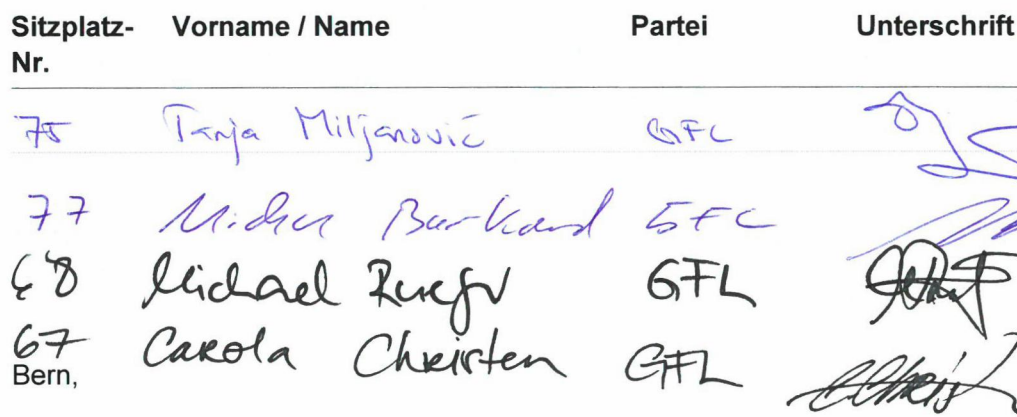 Sitzplatz-Nr. Vorname / Name Partei Unterschrift
75 Tanja Miljanović GFL
77 Michael Burkard GFL
68 Michael Ruefer GFL
67 Carola Christen GFL
Bern,